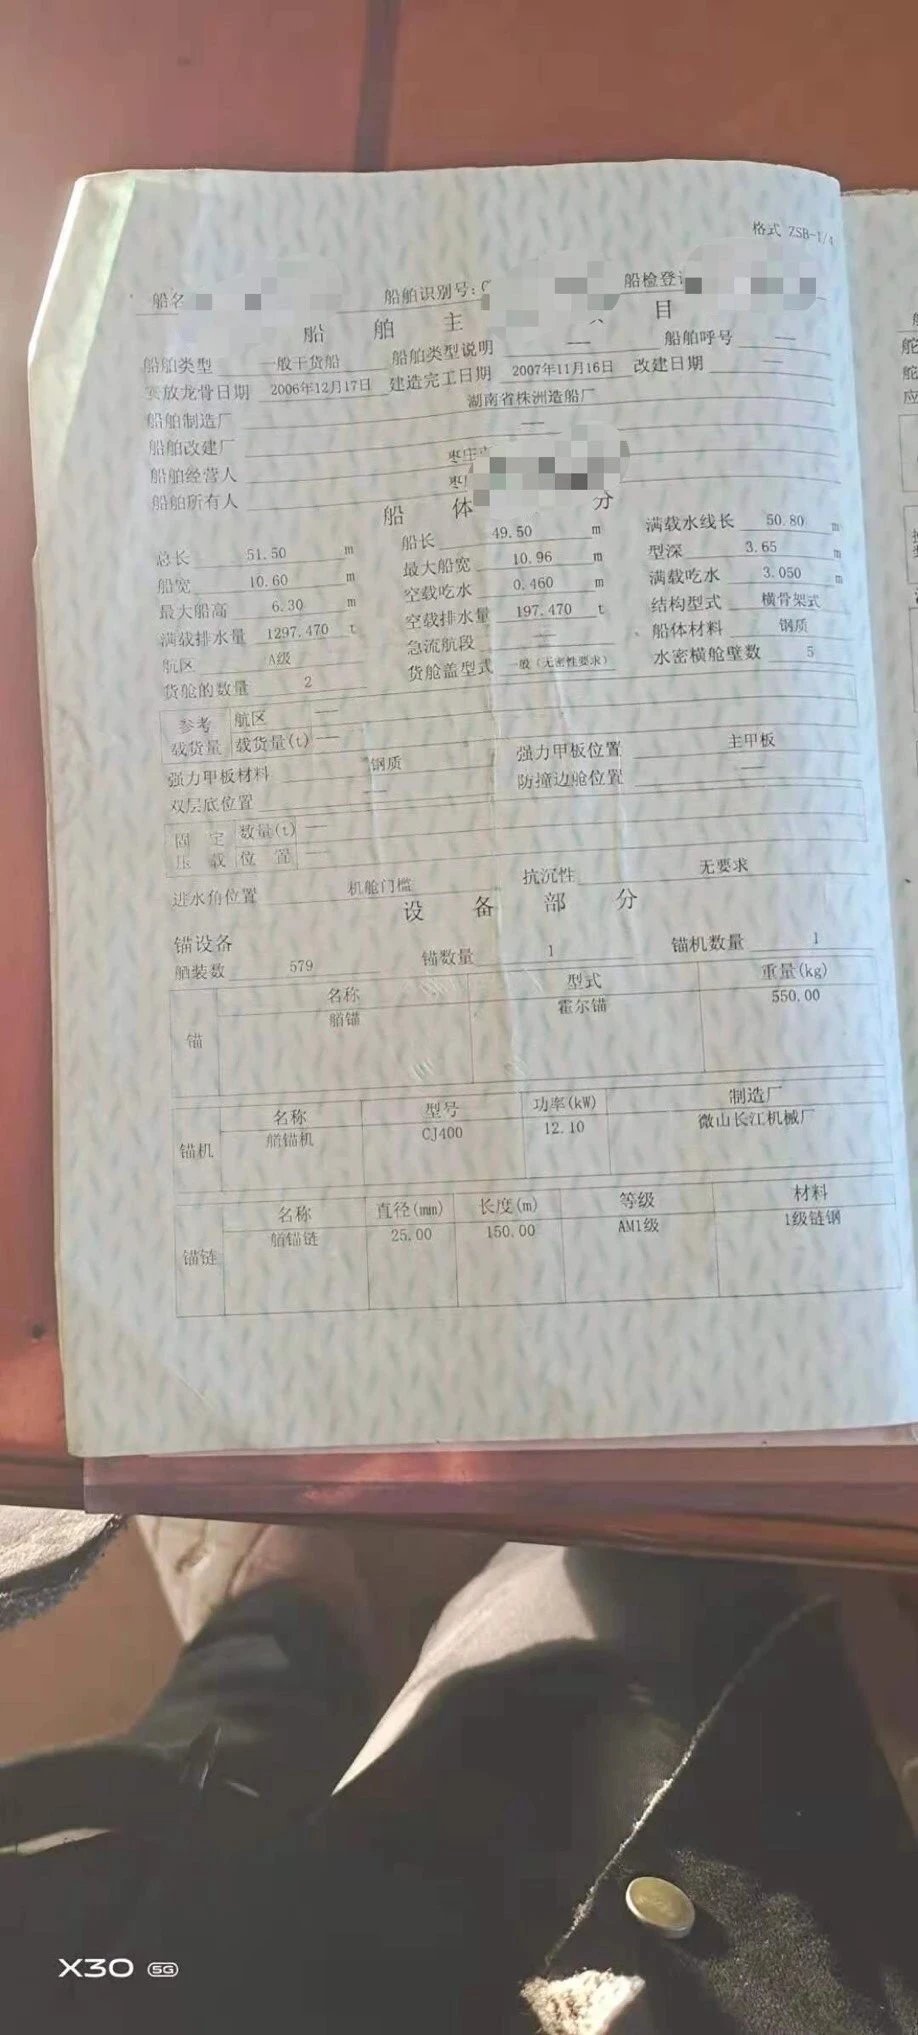 格式 ZSB-1/4
船名 船舶识别号:C 船检登
船 舶 主 目
船舶类型 一般干货船 船舶类型说明 — 船舶呼号 —
安放龙骨日期 2006年12月17日 建造完工日期 2007年11月16日 改建日期 —
船舶制造厂 湖南省株洲造船厂
船舶改建厂 —
船舶经营人 枣庄
船舶所有人 枣
船 体 分
总长 51.50 m 船长 49.50 m 满载水线长 50.80 m
船宽 10.60 m 最大船宽 10.96 m 型深 3.65 m
最大船高 6.30 m 空载吃水 0.460 m 满载吃水 3.050 m
满载排水量 1297.470 t 空载排水量 197.470 t 结构型式 横骨架式
航区 A级 急流航段 — 船体材料 钢质
货舱的数量 2 货舱盖型式 一般(无密性要求) 水密横舱壁数 5
参考 航区 —
载货量 载货量(t) —
强力甲板材料 钢质 强力甲板位置 主甲板
双层底位置 — 防撞边舱位置 —
固 定 数量(t) —
压 载 位 置 —
进水角位置 机舱门槛 抗沉性 无要求
设 备 部 分
锚设备
舾装数 579 锚数量 1 锚机数量 1
名称 型式 重量(kg)
锚 艏锚 霍尔锚 550.00
名称 型号 功率(kW) 制造厂
锚机 艏锚机 CJ400 12.10 微山长江机械厂
名称 直径(mm) 长度(m) 等级 材料
锚链 艏锚链 25.00 150.00 AM1级 1级链钢
船
舵
舵
应
X30 5G